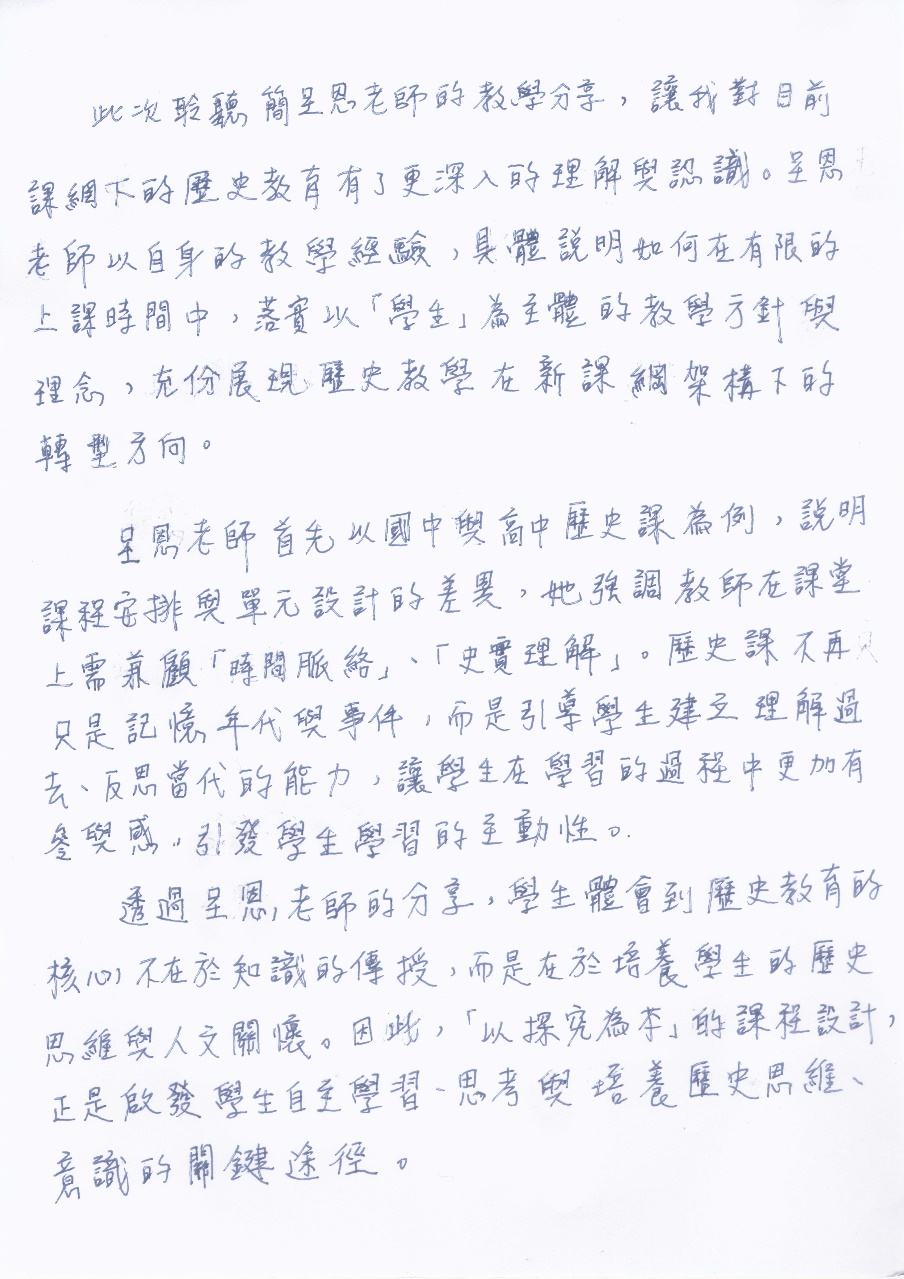 此次聆聽簡呈恩老師的教學分享，讓我對目前
課綱下的歷史教育有了更深入的理解與認識。呈恩
老師以自身的教學經驗，具體說明如何在有限的
上課時間中，落實以「學生」為主體的教學方針與
理念，充份展現歷史教學在新課綱架構下的
轉型方向。
呈恩老師首先以國中與高中歷史課為例，說明
課程安排與單元設計的差異，她強調教師在課堂
上需兼顧「時間脈絡」、「史實理解」。歷史課不再
只是記憶年代與事件，而是引導學生建立理解過
去、反思當代的能力，讓學生在學習的過程中更加有
參與感，引發學生學習的主動性。
透過呈恩老師的分享，學生體會到歷史教育的
核心不在於知識的傳授，而是在於培養學生的歷史
思維與人文關懷。因此，「以探究為本」的課程設計，
正是啟發學生自主學習、思考與培養歷史思維、
意識的關鍵途徑。